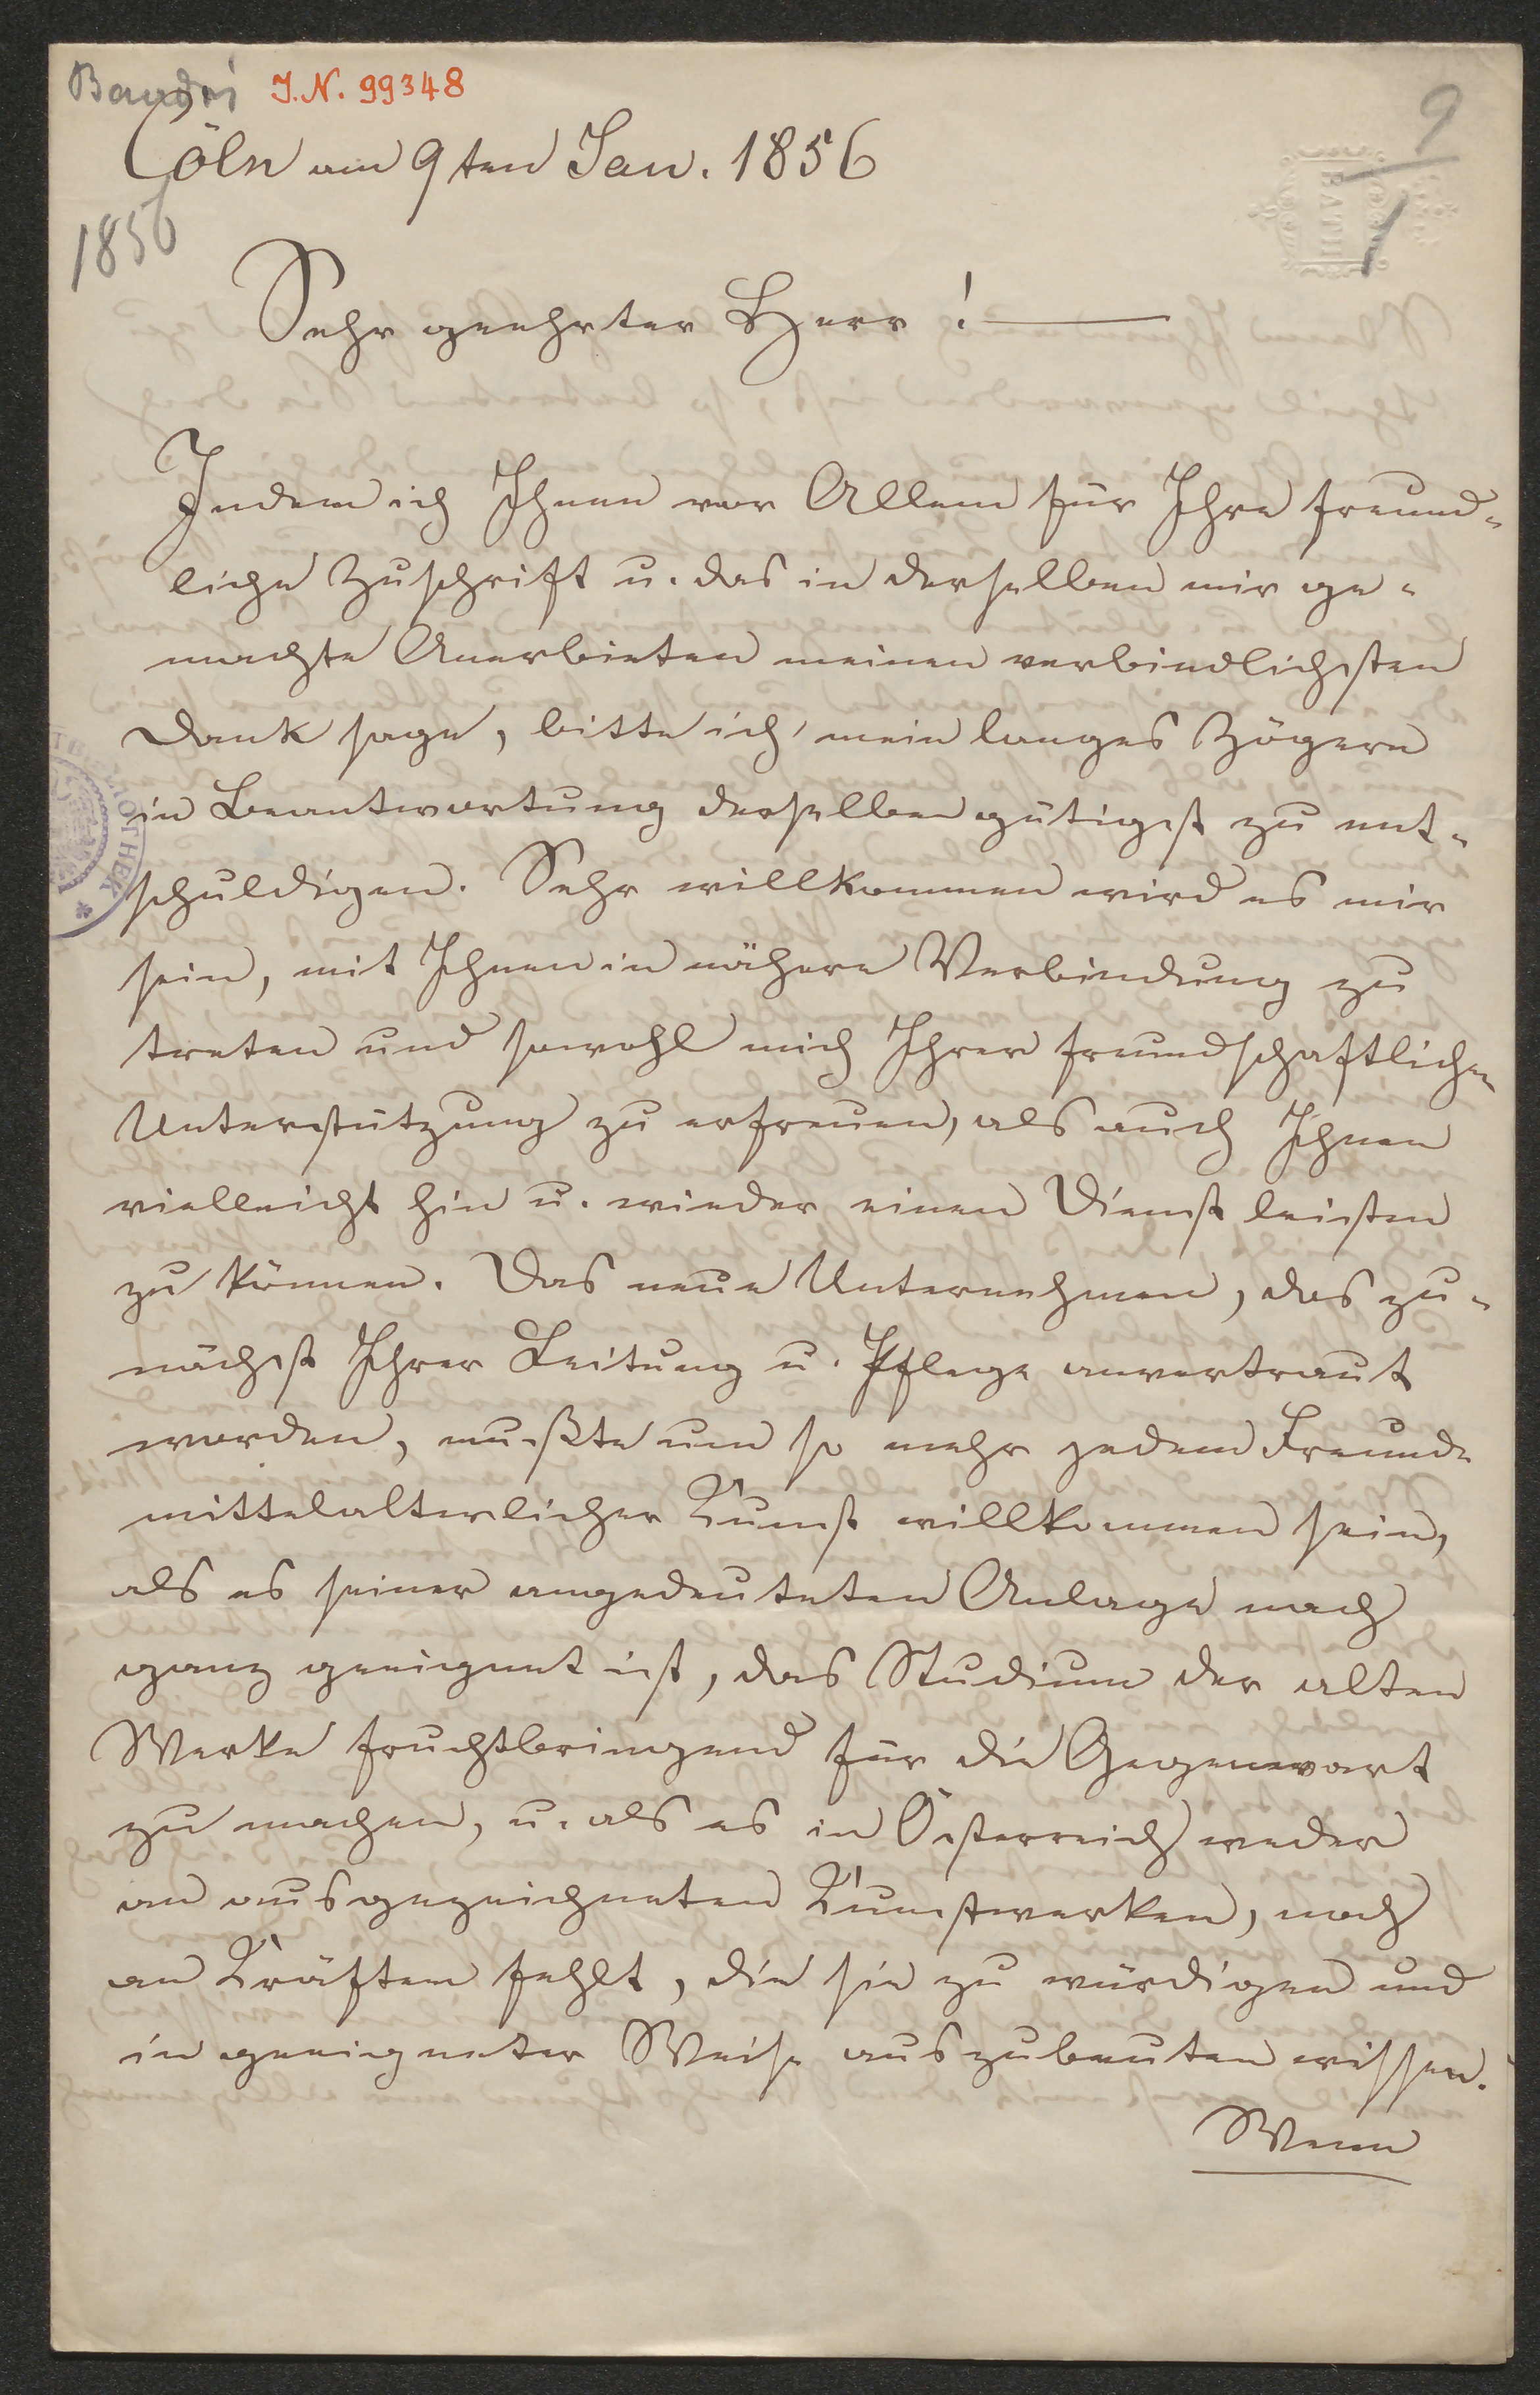 Baudri J.N. 99348
9
Cöln am 9ten Jan. 1856
1
BATH
1856
Sehr geehrter Herr !
Indem ich Ihnen vor Allem für Ihre freund-
liche Zuschrift u. das in derselben mir ge-
machte Anerbieten meinen verbindlichsten
Dank sage, bitte ich, mein langes Zögern
in Beantwortung derselben gütigst zu ent-
schuldigen. Sehr willkommen wird es mir
sein, mit Ihnen in nähere Verbindung zu
treten und sowohl mich Ihrer freundschaftlichen
Unterstützung zu erfreuen, als auch Ihnen
vielleicht hin u. wieder einen Dienst leisten
zu können. Das neue Unternehmen, das zu-
nächst Ihrer Leitung u. Pflege anvertraut
worden, mußte um so mehr jedem Freunde
mittelalterlicher Kunst willkommen sein,
als es seiner angedeuteten Anlage nach
ganz geeignet ist, das Studium der alten
Werke fruchtbringend für die Gegenwart
zu machen, u. als es in Österreich weder
an ausgezeichneten Kunstwerken, noch
an Kräften fehlt, die sie zu würdigen und
in geeigneter Weise auszubeuten wissen.
Wenn